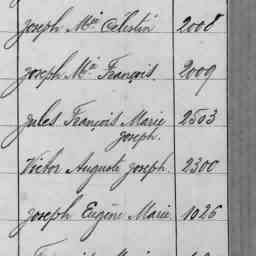 Joseph Mie Célestin 2008
Joseph Mie François. 2009
Jules François Marie 2503
Joseph.
Victor Auguste Joseph. 2300
Joseph Eugène Marie 1026